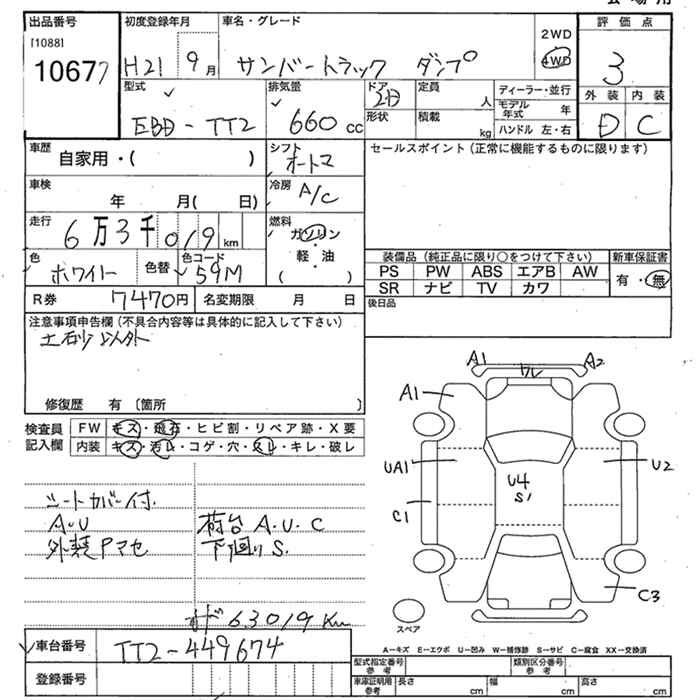 会場用
出品番号 初度登録年月 車名・グレード 評価点
[1088] 2WD
10677 H21 9月 サンバートラック ダンプ 4WD 3
型式 排気量 ドア 定員 ディーラー・並行 外装 内装
2D 人 モデル年式 年
EBD-TT2 660cc 形状 積載 kg ハンドル 左・右 D C
車歴 シフト セールスポイント(正常に機能するものに限ります)
自家用・( ) オートマ
車検 冷房
年 月( 日) A/C
走行 燃料
6万3千019km ガソリン
色 色替 色コード 軽・油 装備品(純正品に限り○をつけて下さい) 新車保証書
ホワイト 59M ( ) PS PW ABS エアB AW 有・無
R券 7470円 名変期限 月 日 SR ナビ TV カワ
注意事項申告欄(不具合内容等は具体的に記入して下さい) 後日品
土砂以外
修復歴 有 〔箇所 〕
検査員記入欄 FW キズ・飛石・ヒビ割・リペア跡・X要
内装 キズ・汚レ・コゲ・穴・スレ・キレ・破レ
シートカバー付
A.U 荷台 A.U.C
外装Pマセ 下廻りS.
オド63019Km
A1 ワレ A2
A1
UA1 U4 U2
S1
C1
C3
スペア
車台番号 TT2-449674
A-キズ E-エクボ U-凹み W-補修跡 S-サビ C-腐食 XX-交換済
登録番号 型式指定番号 参考 類別区分番号 参考
車庫証明用 参考 長さ cm 幅 cm 高さ cm